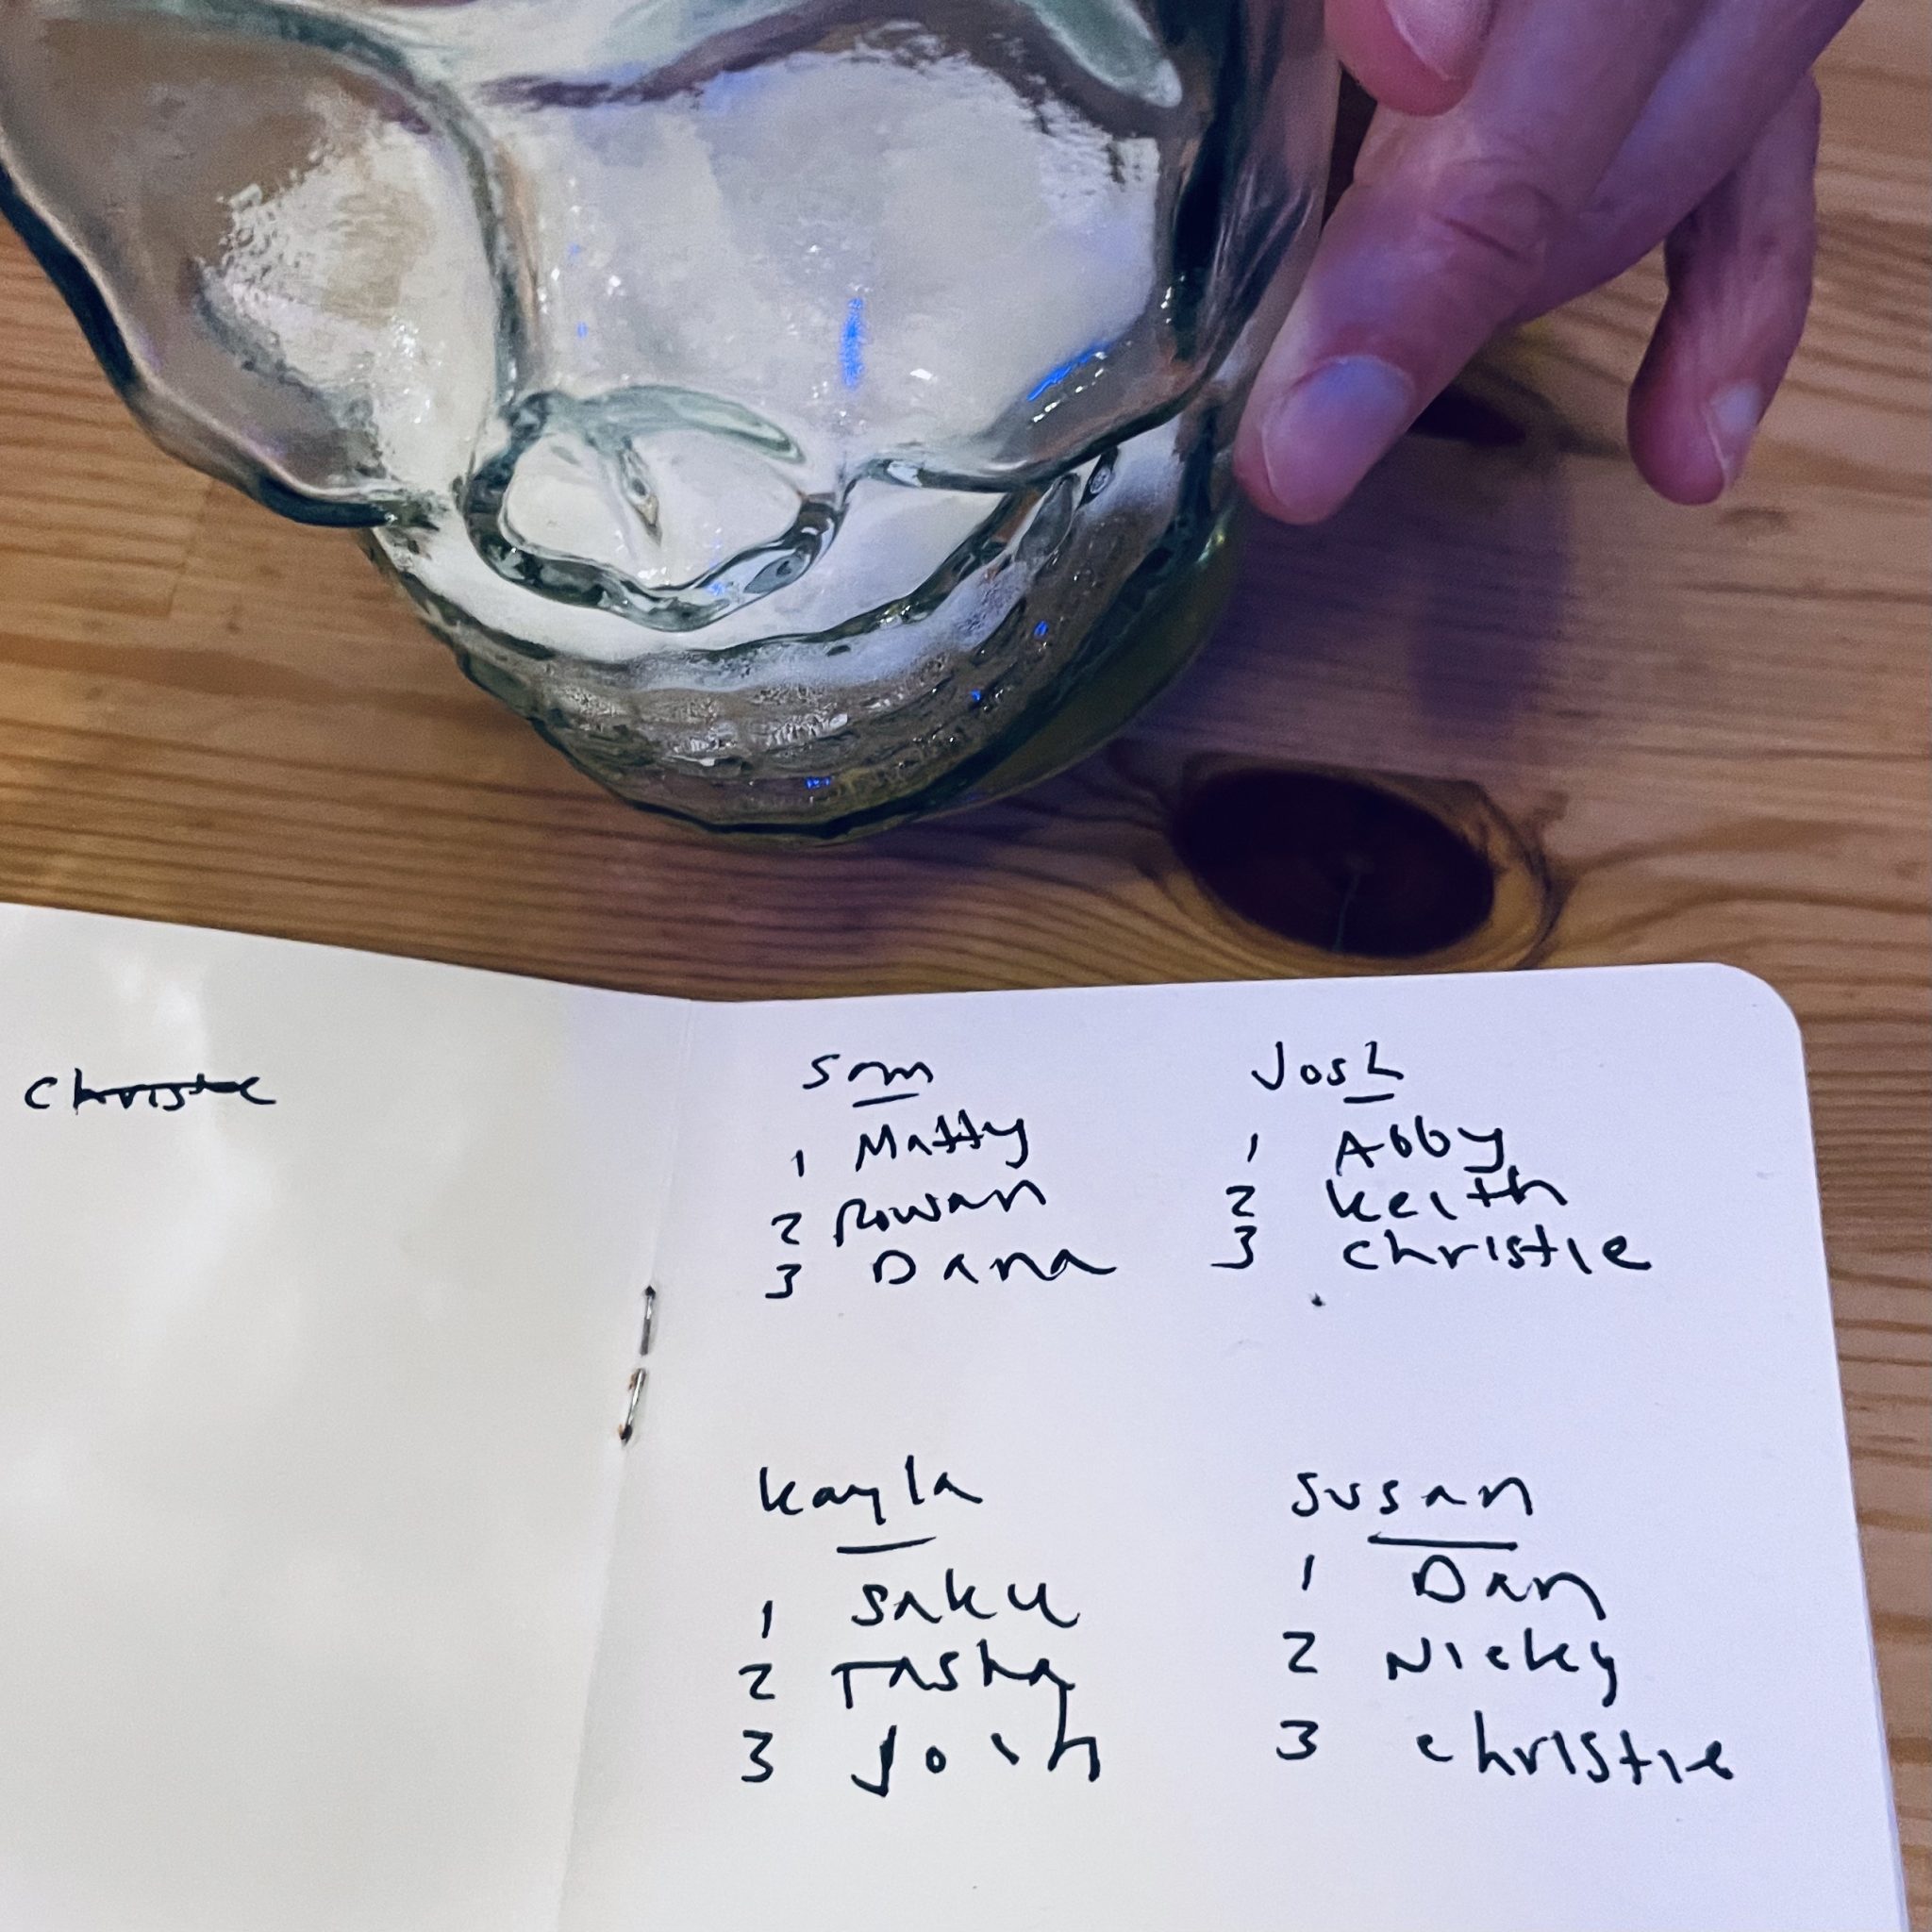 Christie
Sam
1 Matty
2 Rowan
3 Dana
Josh
1 Abby
2 Keith
3 Christie
Kayla
1 Saku
2 Tasha
3 Josh
Susan
1 Dan
2 Nicky
3 Christie